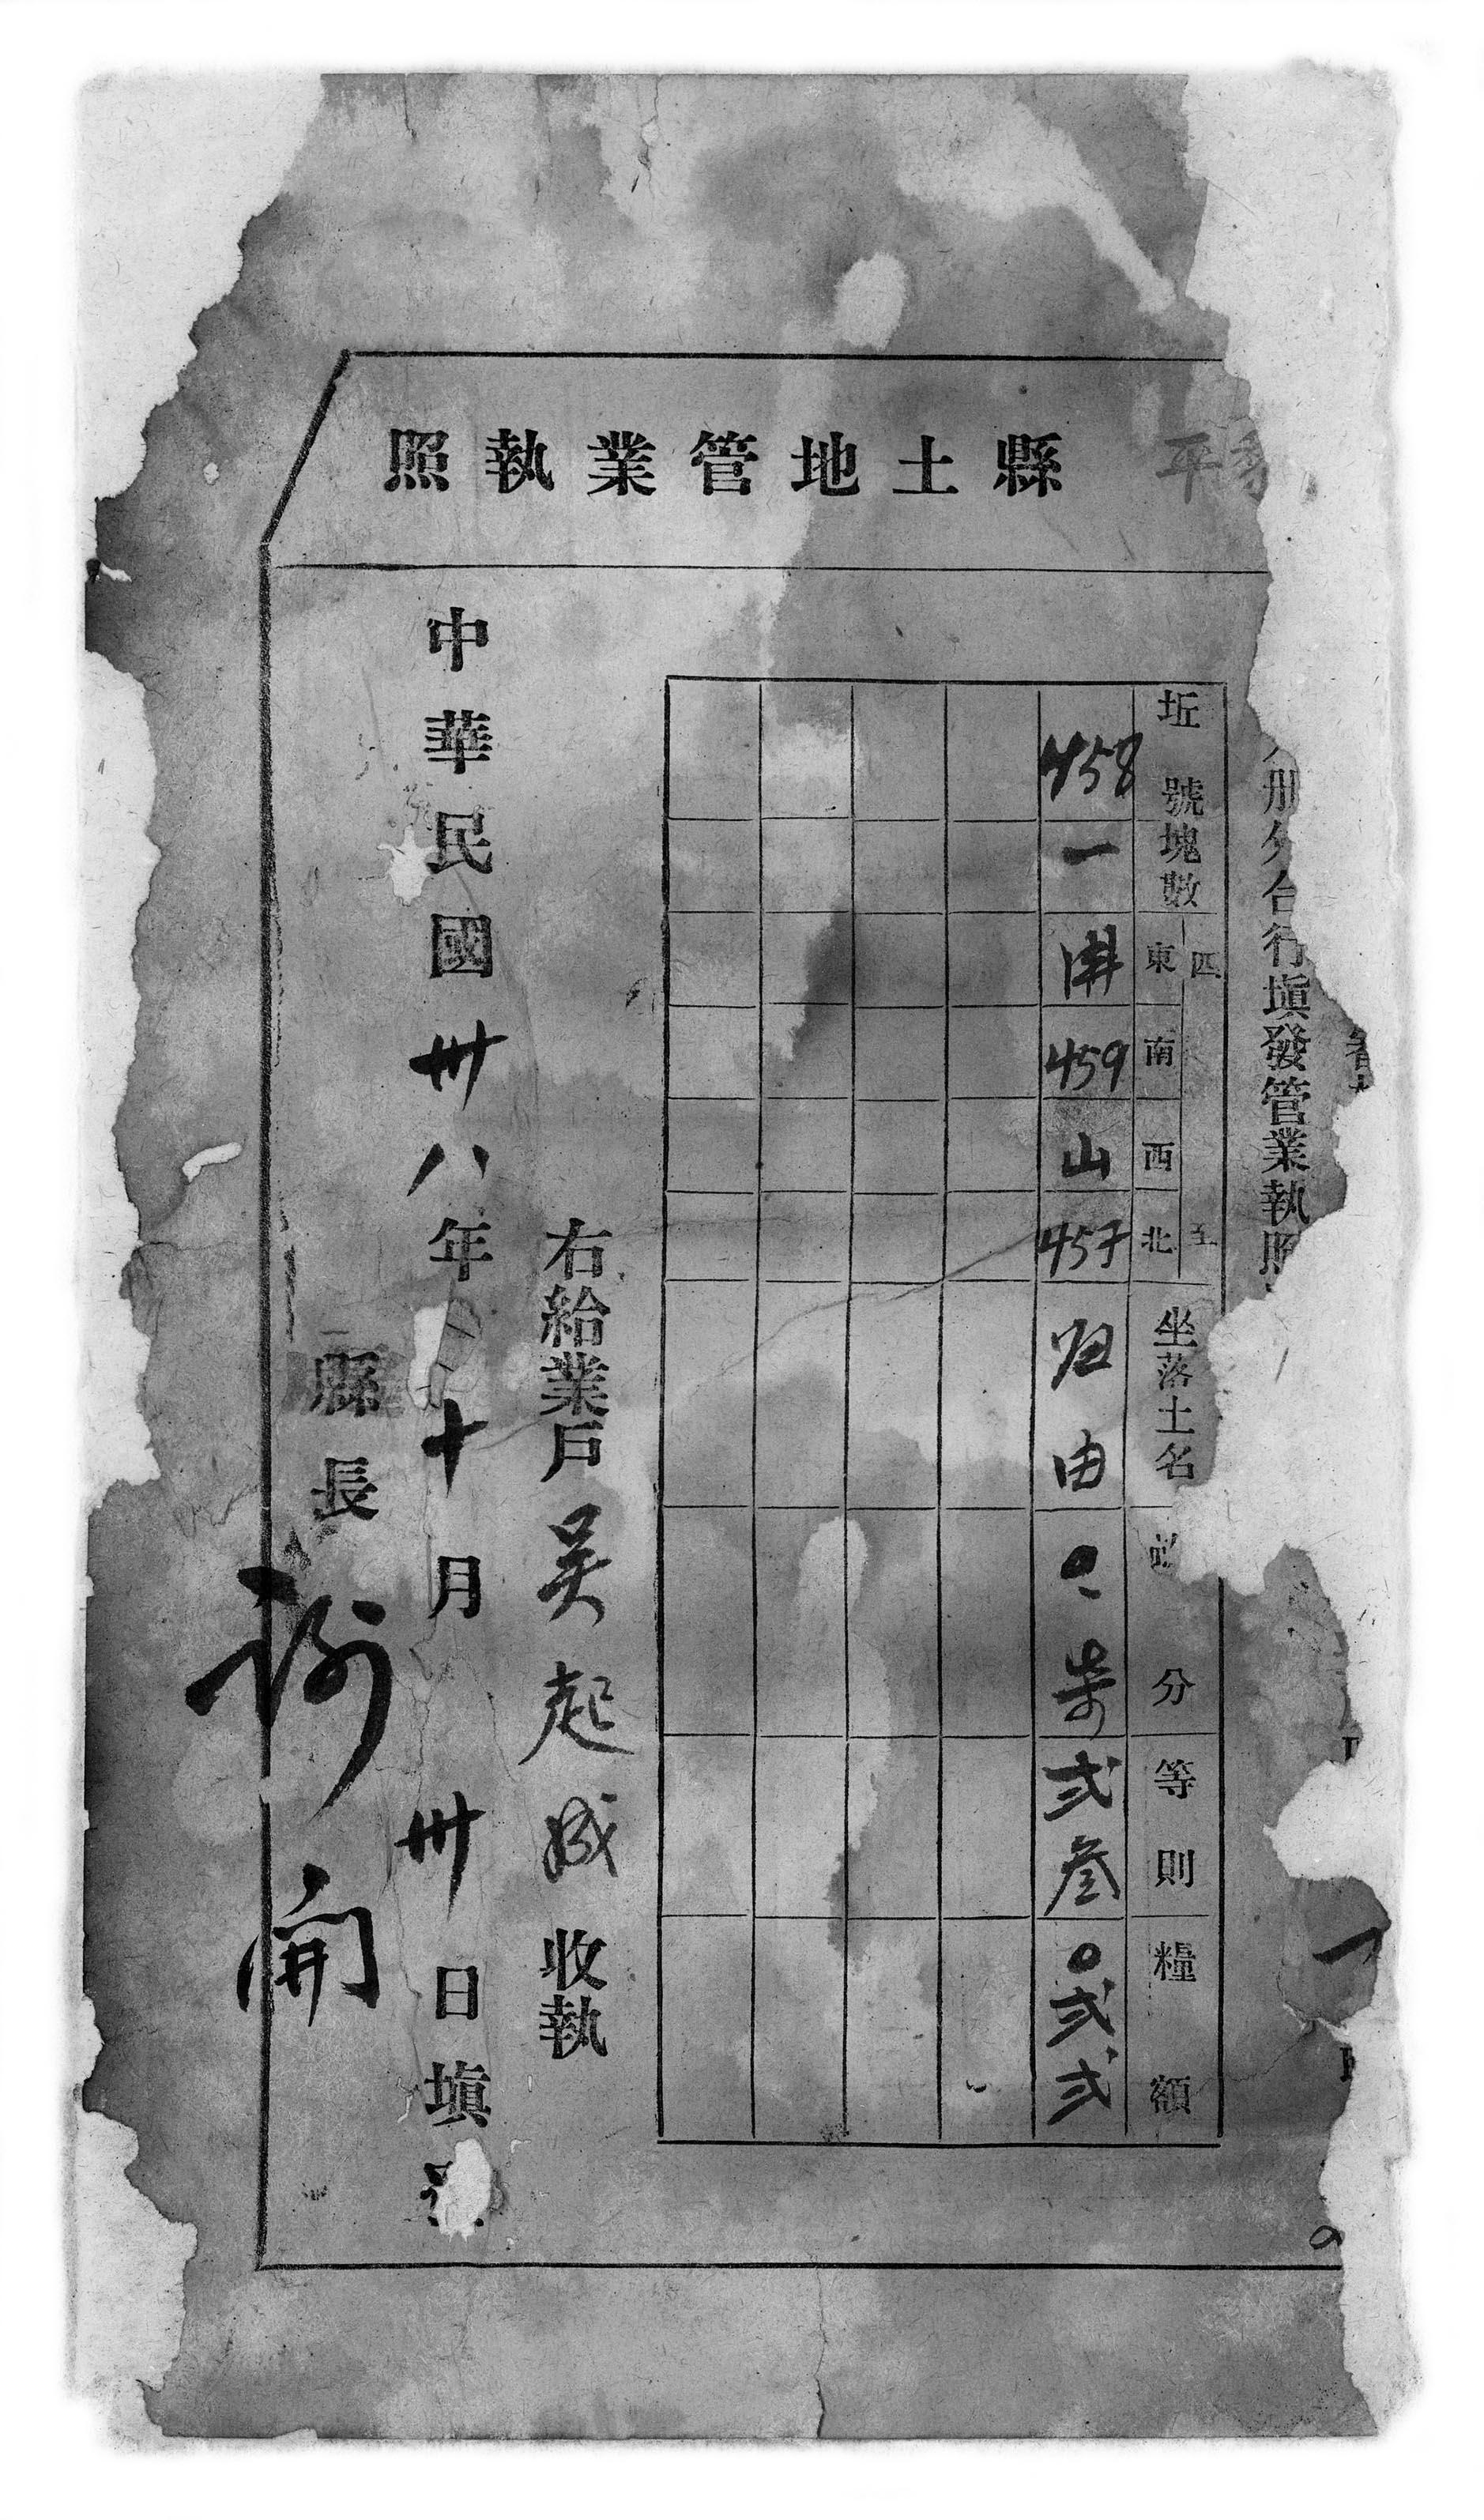 平縣土地管業執照
册分合行塡發管業執照
坵號 塊數 四至 東 南 西 北 坐落土名 分 等則 糧額
458 一 溝 459 山 457 由 〇 柒 弍 叁 〇弍弍
右給業戶吳起成收執
中華民國卅八年十月卅日塡
縣長